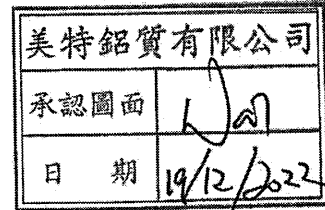 美特鋁質有限公司
承認圖面
日期 19/12/2022